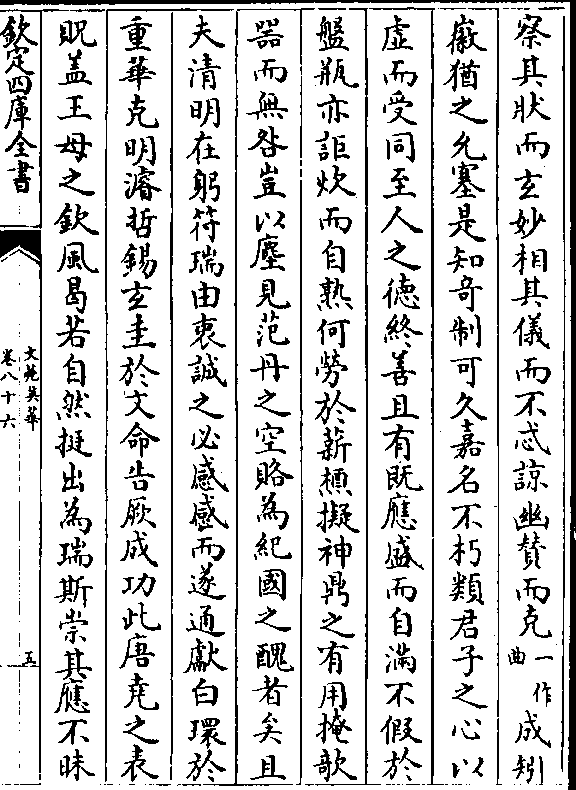 察其狀而玄妙相其儀而不忒諒幽賛而克一作曲成矧
嶶猶之允塞是知竒制可久嘉名不朽類君子之心以
虚而受同至人之德終善且有既應盛而自滿不假於
盤瓶亦詎炊而自熟何勞於薪槱擬神鼎之有用掩歌
器而無咎豈以塵見范丹之空賂為紀國之醜者矣且
夫清明在躬符瑞由衷誠之必感感而遂通獻白環於
重華克明濬哲錫玄圭於文命告厥成功此唐堯之表
貺盖王母之欽風曷若自然挺出為瑞斯崇其應不昧
欽定四庫全書
文苑英華
卷八十六
五